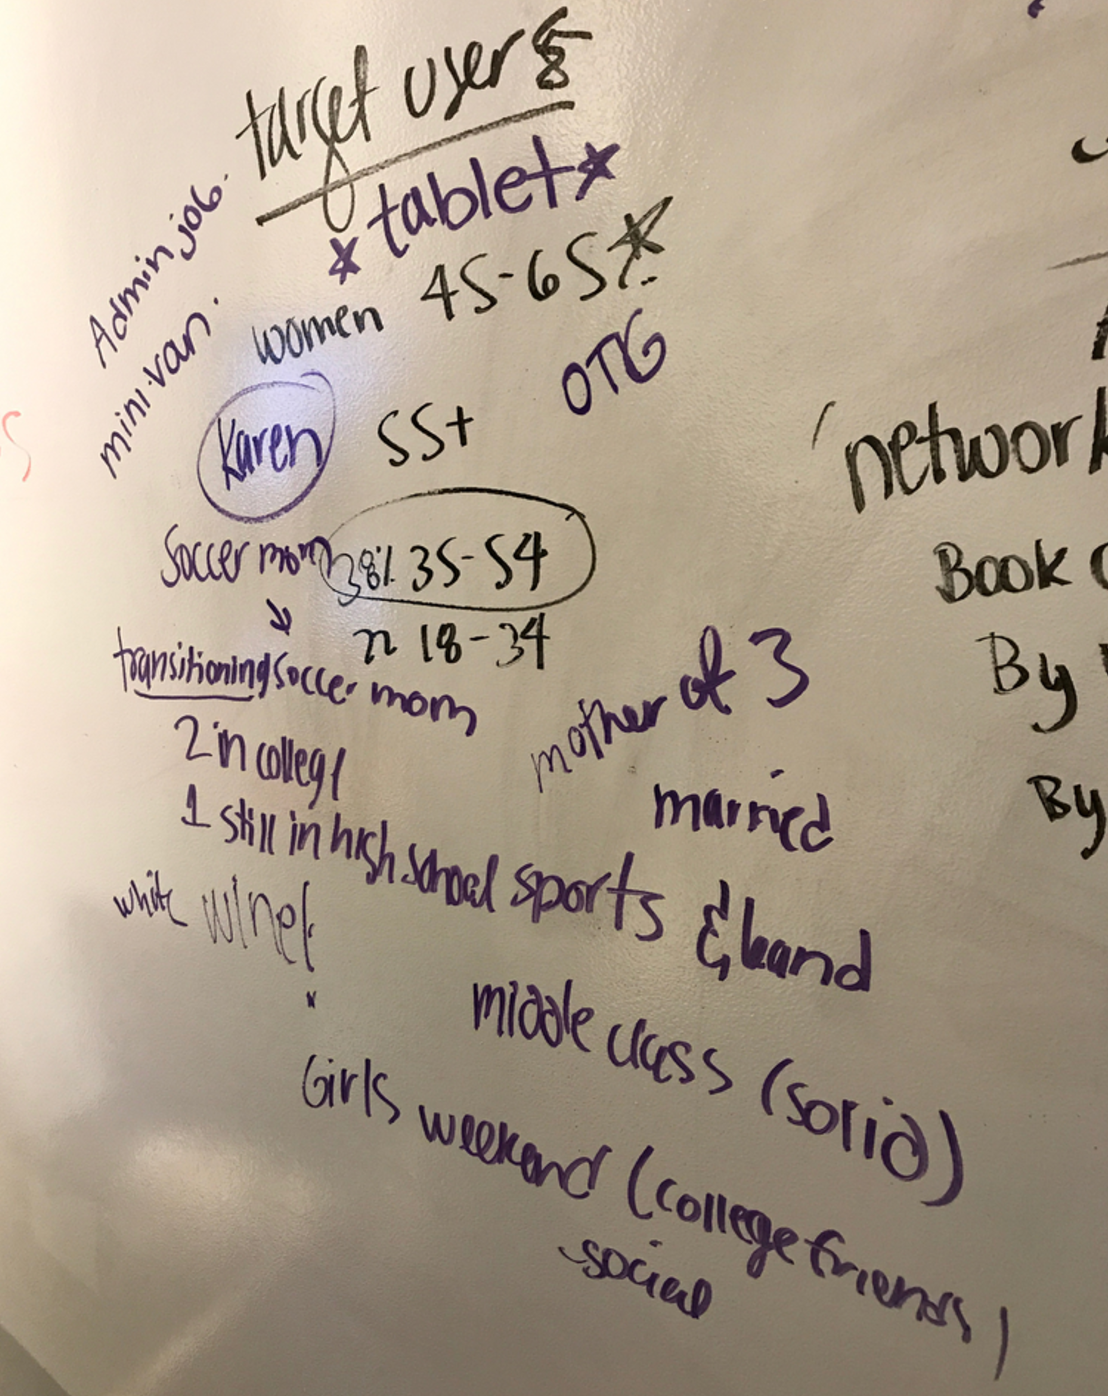 target users
* tablet *
Admin job.
women 45-65 *
mini-van.
OTG
Karen
55+
Soccer mom
38% 35-54
22 18-34
transitioning soccer mom
mother of 3
2 in college
married
1 still in high school sports & band
white wine
middle class (solid)
Girls weekend (college friends)
social
network
Book
By
By